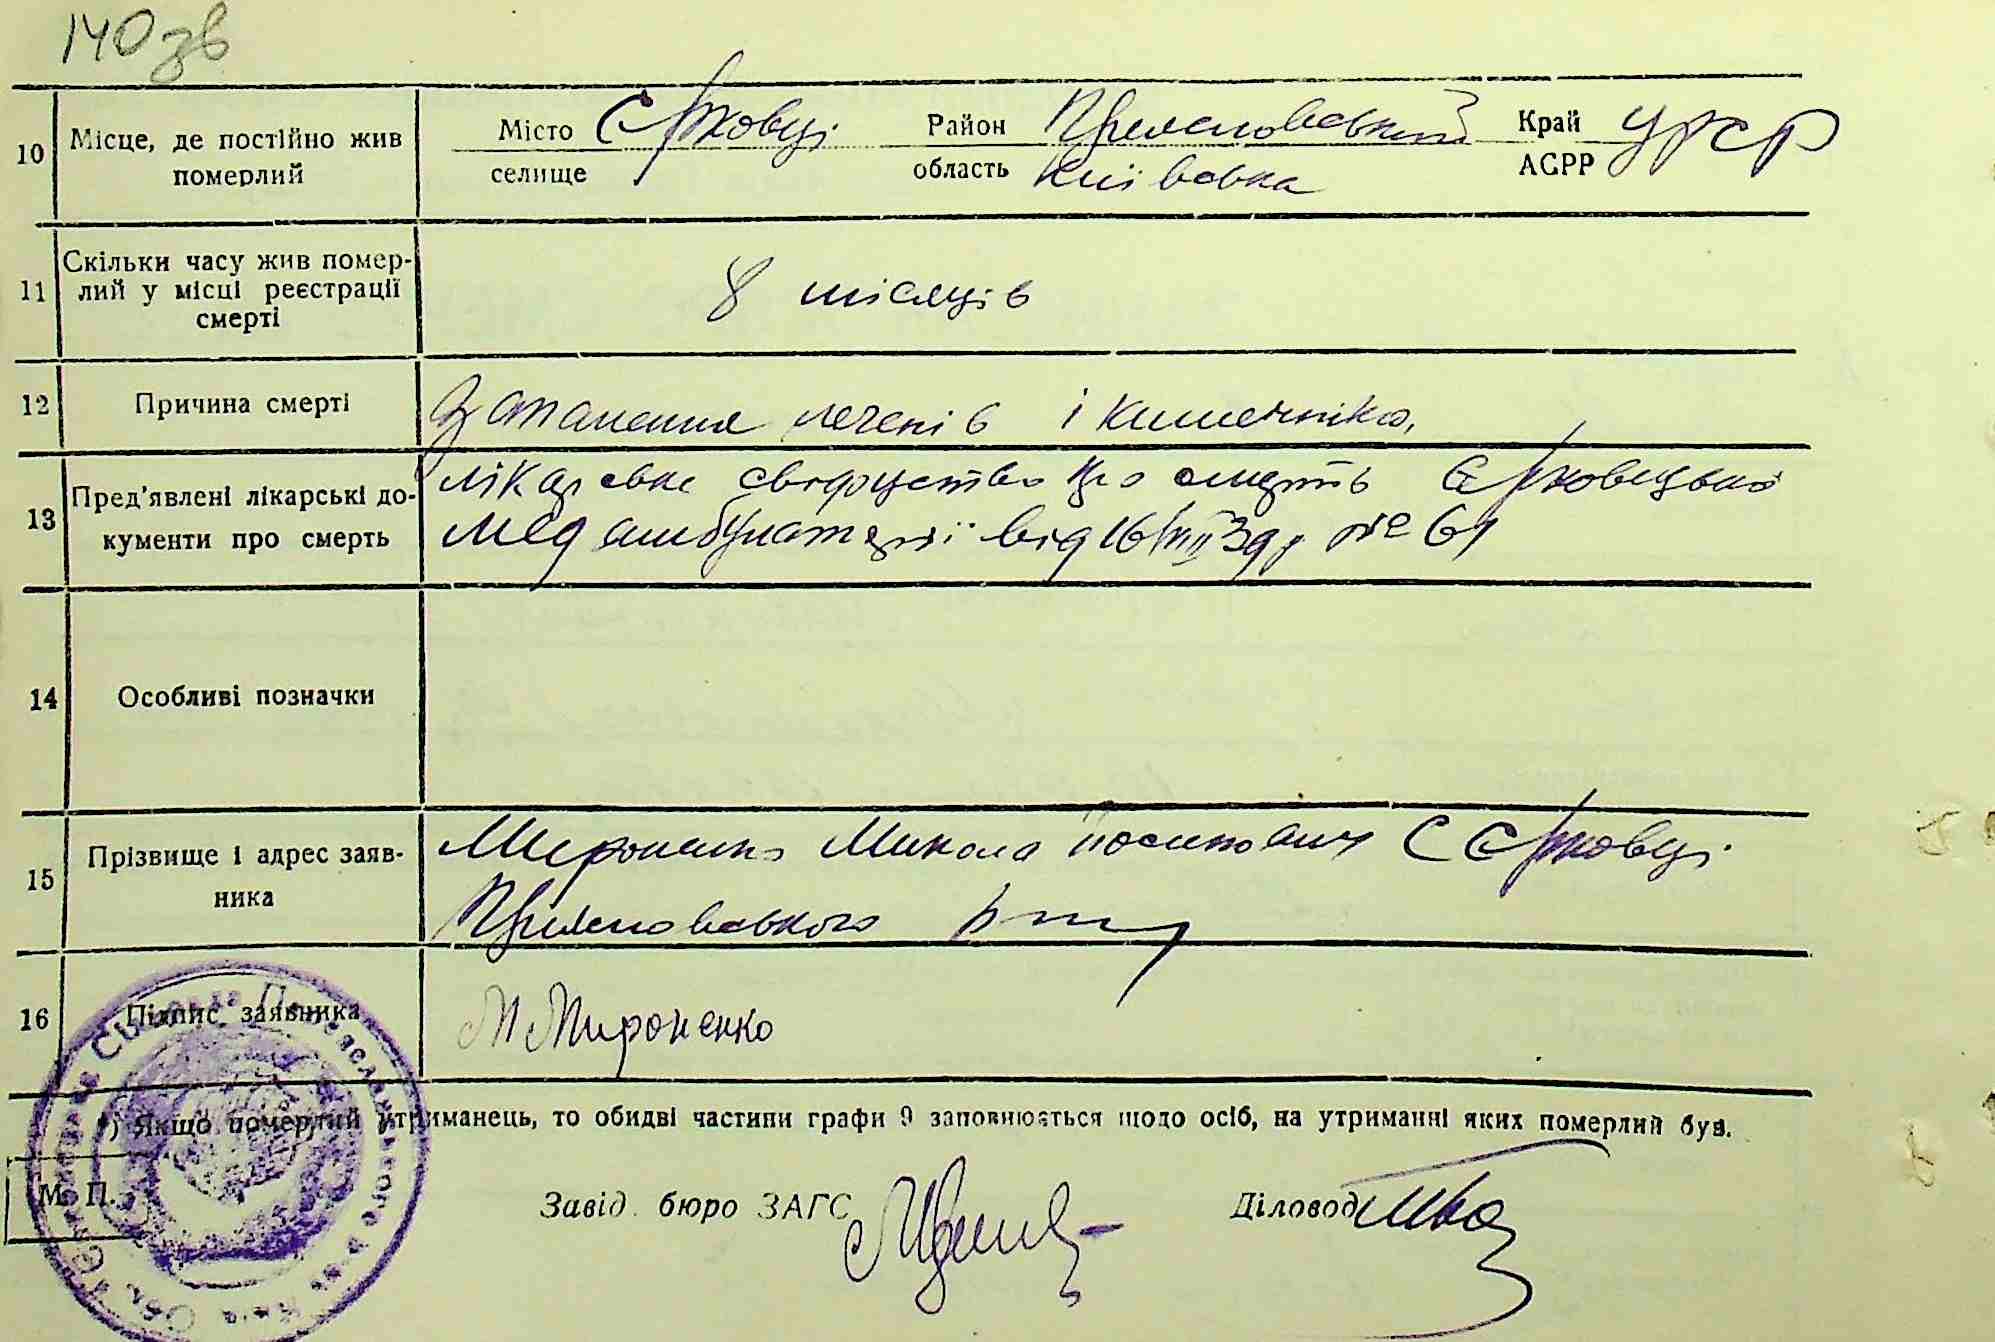 140зв
10 Місце, де постійно жив померлий
Місто селище С Єрковці Район область Переяславський Київська Край АСРР УРСР
11 Скільки часу жив померлий у місці реєстрації смерті
8 місяців
12 Причина смерті
Запалення легенів і кишечніка.
13 Пред'явлені лікарські документи про смерть
лікарське свідоцтво про смерть Єрковецької
мед амбулаторії від 16/VIII 39 р № 61
14 Особливі позначки
15 Прізвище і адрес заявника
Мироненко Микола Йосипович С Єрковці
Переяславського р-ну
16 Підпис заявника
М Мироненко
*) Якщо померлий утриманець, то обидві частини графи 9 заповнюється щодо осіб, на утриманні яких померлий був.
М. П.
Завід. бюро ЗАГС
Діловод